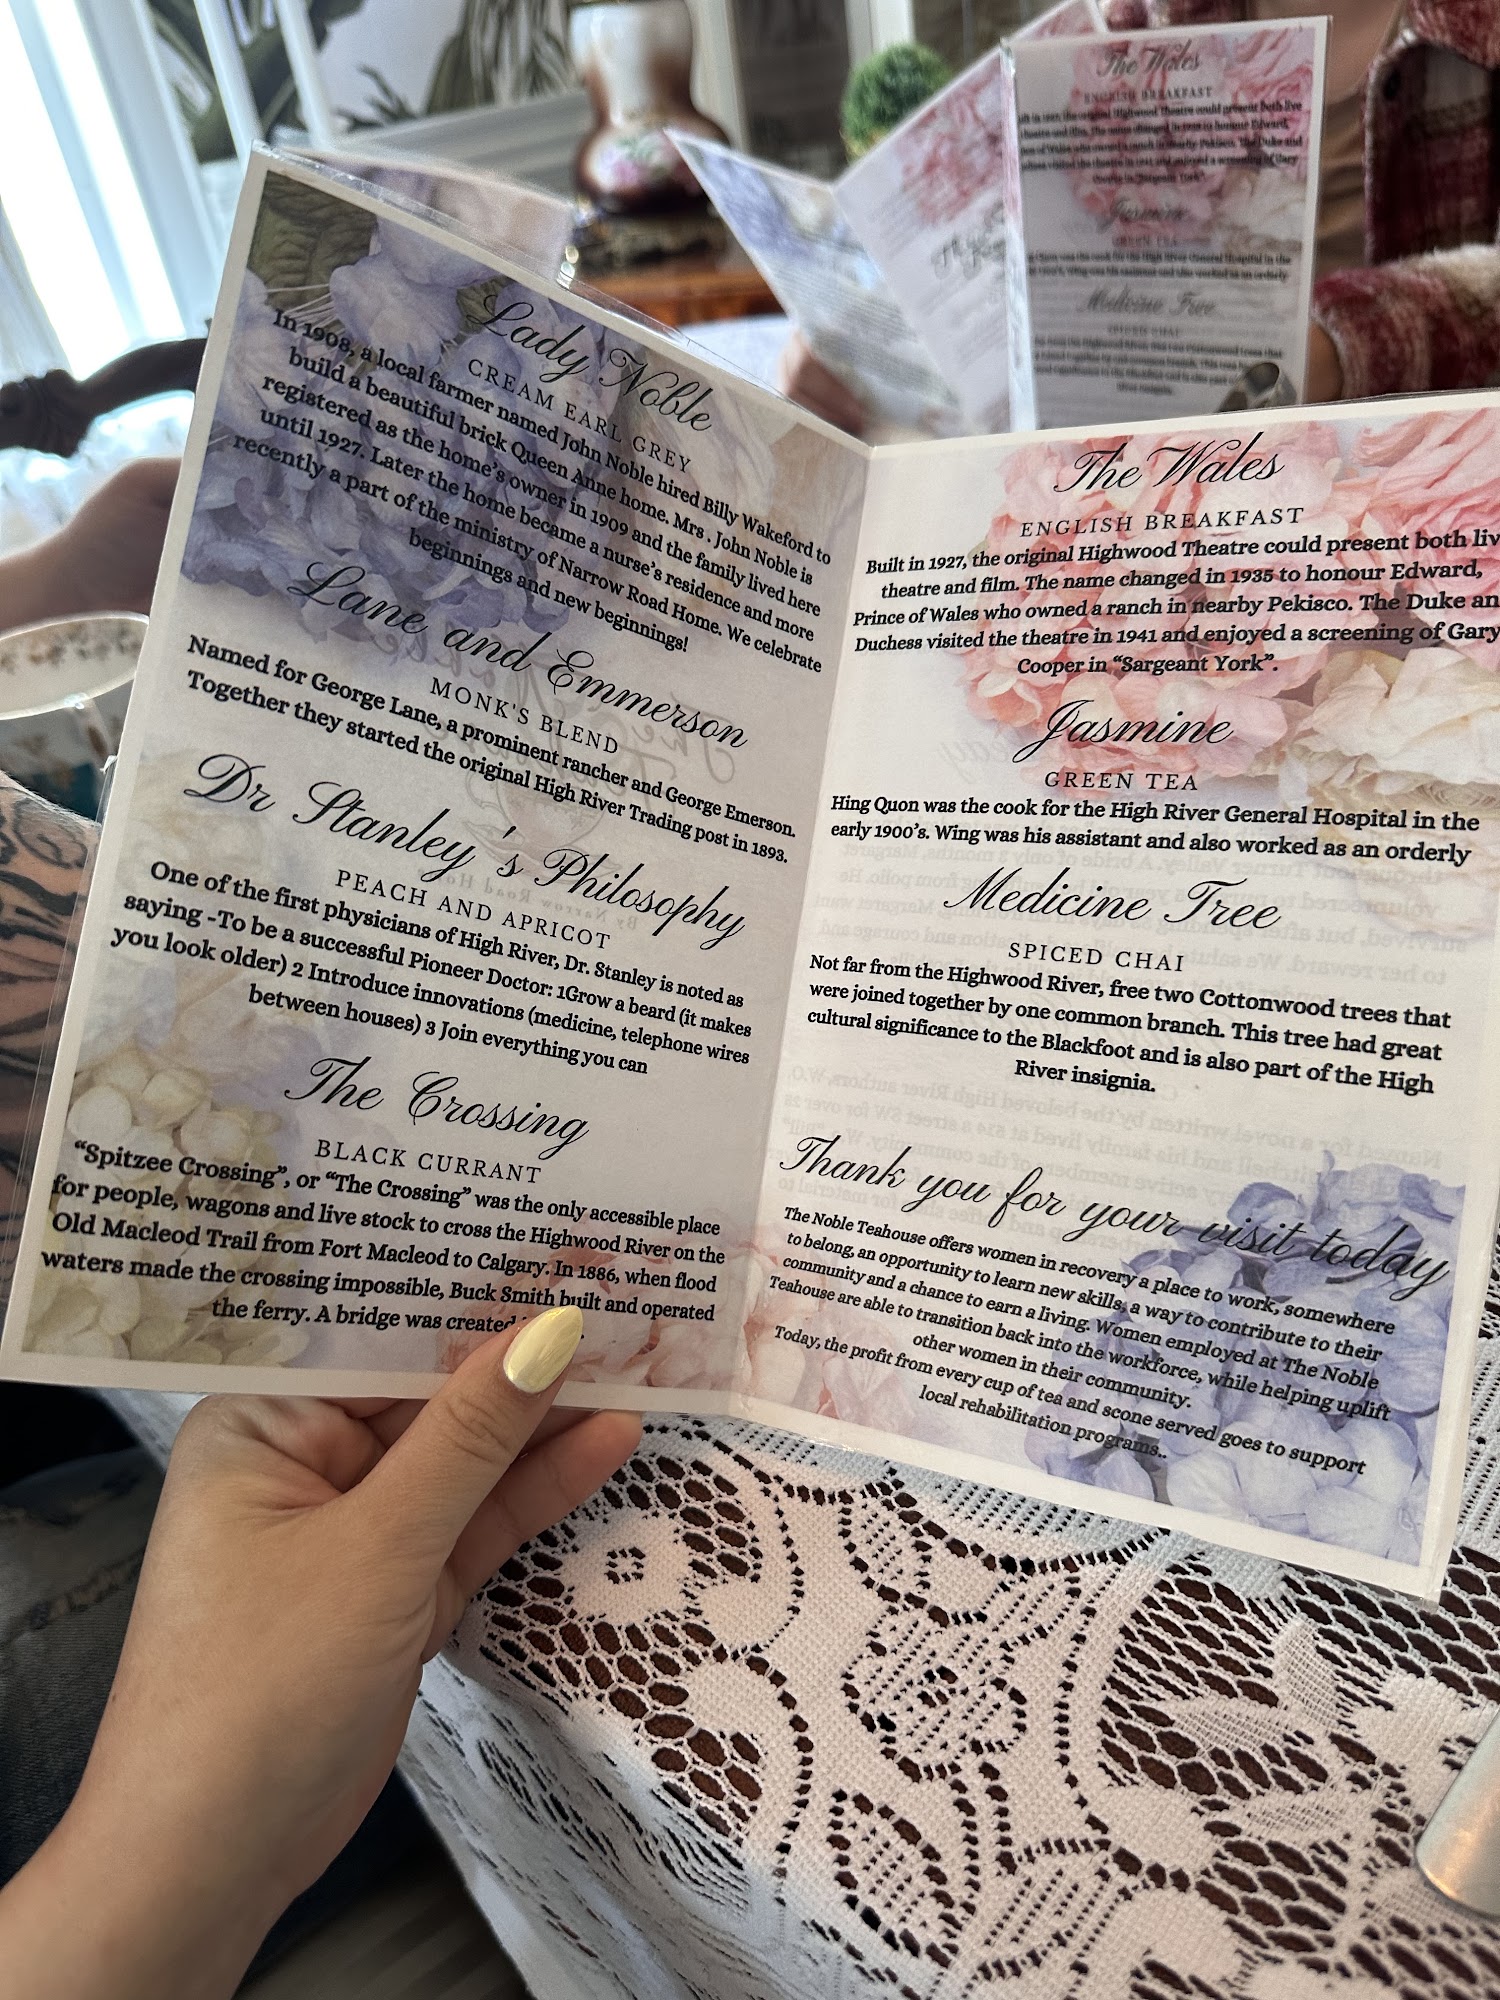 Lady Noble
CREAM EARL GREY
In 1908, a local farmer named John Noble hired Billy Wakeford to
build a beautiful brick Queen Anne home. Mrs . John Noble is
registered as the home's owner in 1909 and the family lived here
until 1927. Later the home became a nurse's residence and more
recently a part of the ministry of Narrow Road Home. We celebrate
beginnings and new beginnings!
Lane and Emmerson
MONK'S BLEND
Named for George Lane, a prominent rancher and George Emerson.
Together they started the original High River Trading post in 1893.
Dr Stanley's Philosophy
PEACH AND APRICOT
One of the first physicians of High River, Dr. Stanley is noted as
saying -To be a successful Pioneer Doctor: 1Grow a beard (it makes
you look older) 2 Introduce innovations (medicine, telephone wires
between houses) 3 Join everything you can
The Crossing
BLACK CURRANT
"Spitzee Crossing", or "The Crossing" was the only accessible place
for people, wagons and live stock to cross the Highwood River on the
Old Macleod Trail from Fort Macleod to Calgary. In 1886, when flood
waters made the crossing impossible, Buck Smith built and operated
the ferry. A bridge was created
The Wales
ENGLISH BREAKFAST
Built in 1927, the original Highwood Theatre could present both liv
theatre and film. The name changed in 1935 to honour Edward,
Prince of Wales who owned a ranch in nearby Pekisco. The Duke an
Duchess visited the theatre in 1941 and enjoyed a screening of Gary
Cooper in "Sargeant York".
Jasmine
GREEN TEA
Hing Quon was the cook for the High River General Hospital in the
early 1900's. Wing was his assistant and also worked as an orderly
Medicine Tree
SPICED CHAI
Not far from the Highwood River, free two Cottonwood trees that
were joined together by one common branch. This tree had great
cultural significance to the Blackfoot and is also part of the High
River insignia.
Thank you for your visit today
The Noble Teahouse offers women in recovery a place to work, somewhere
to belong, an opportunity to learn new skills, a way to contribute to their
community and a chance to earn a living. Women employed at The Noble
Teahouse are able to transition back into the workforce, while helping uplift
other women in their community.
Today, the profit from every cup of tea and scone served goes to support
local rehabilitation programs..
The Wales
ENGLISH BREAKFAST
Jasmine
GREEN TEA
Medicine Tree
SPICED CHAI